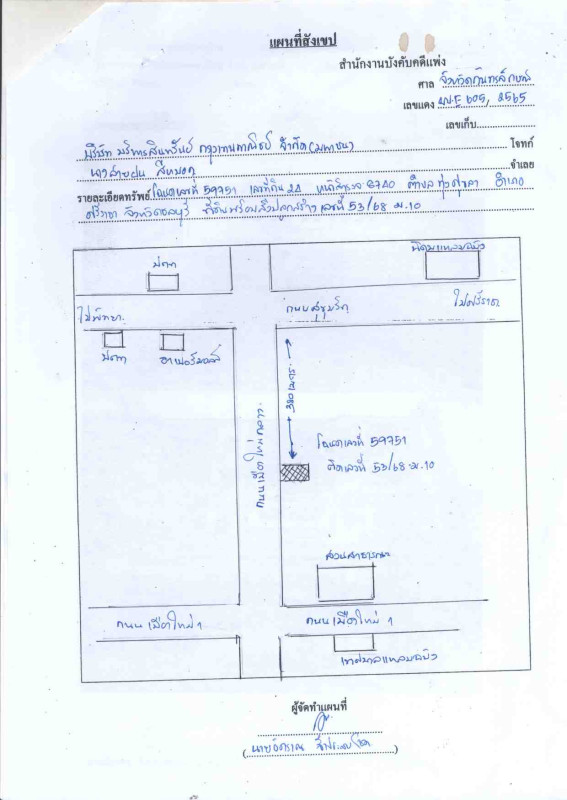 แผนที่สังเขป
สำนักงานบังคับคดีแพ่ง
ศาล จังหวัดกันทรลักษณ์
เลขแดง ผบ.E 605, 2565
เลขเก็บ
บริษัท บริหารสินทรัพย์ กรุงเทพพาณิชย์ จำกัด (มหาชน) โจทก์
นางสายฝน จำเลย
รายละเอียดทรัพย์ โฉนดเลขที่ 59751 เลขที่ดิน 24 หน้าสำรวจ 6740 ตำบล ทุ่งสุขลา อำเภอ
ศรีราชา จังหวัดชลบุรี ที่ดินพร้อมสิ่งปลูกสร้าง เลขที่ 53/68 ม.10
ปตท
นิคมแหลมฉบัง
ไปพัทยา
ถนนสุขุมวิท
ไปศรีราชา
ปตท
ฮาเบอร์มอลล์
380 เมตร
ถนนเมืองใหม่กลาง
โฉนดเลขที่ 59751
ติดเลขที่ 53/68 ม.10
สวนสาธารณะ
ถนนเมืองใหม่ 1
ถนนเมืองใหม่ 1
เทศบาลแหลมฉบัง
ผู้จัดทำแผนที่